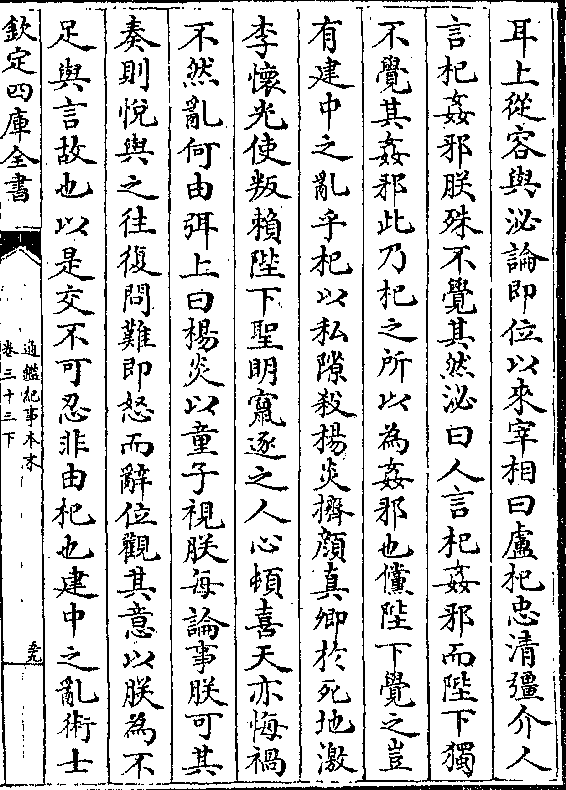 耳上從容與泌論即位以來宰相曰盧杞忠清彊介人
言杞姦邪朕殊不覺其然泌曰人言杞姦邪而陛下獨
不覺其姦邪此乃杞之所以為姦邪也儻陛下覺之豈
有建中之亂乎杞以私隙殺楊炎擠顔真卿於死地激
李懷光使叛賴陛下聖明竄逐之人心頓喜天亦悔禍
不然亂何由弭上曰楊炎以童子視朕每論事朕可其
奏則悅與之往復問難即怒而辭位觀其意以朕為不
足與言故也以是交不可忍非由杞也建中之亂術士
欽定四庫全書
通鑑紀事本末
卷三十三下